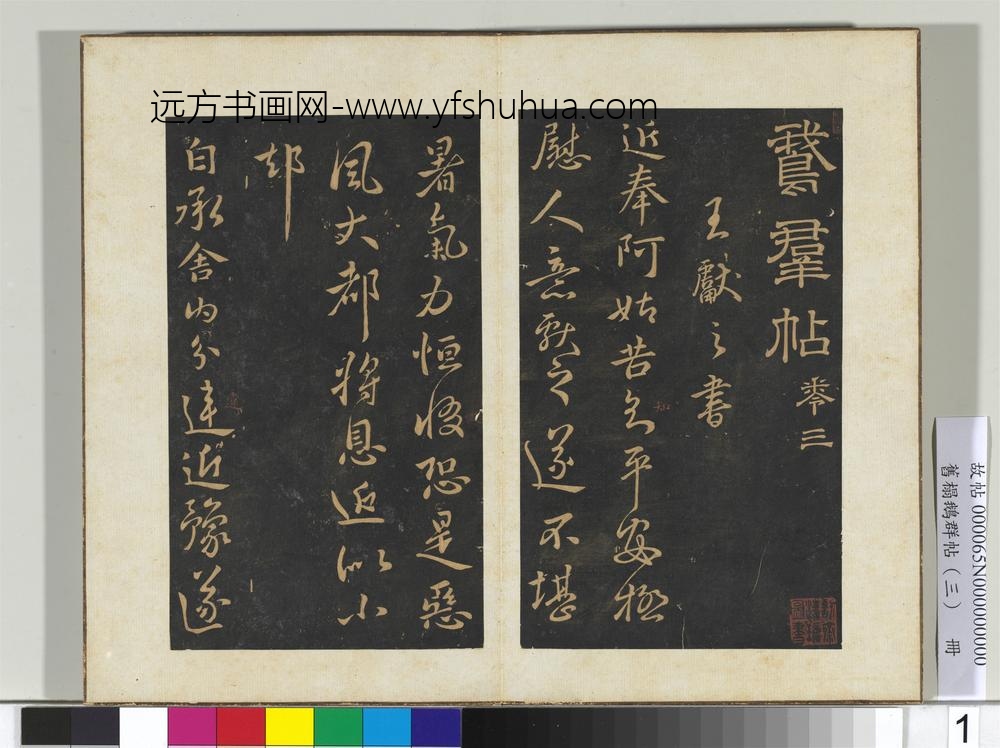 远方书画网-www.yfshuhua.com
鵞羣帖 卷三
王獻之書
近奉阿姑知平安極
慰人意獻之遂不堪
暑氣力恒惙恐是惡
風大都將息近似小
却
白承舍内分違近豫遂
故帖 000065N000000000
舊搨鵝群帖（三） 冊
1